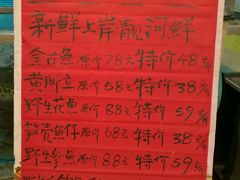 新鮮上岸靚河鮮
金古魚 原价78元特价48元/斤
黄所立 原价58元特价38元/斤
野生花魚 原价88元特价59元/斤
芦荟魚仔 原价68元特价38元/斤
野生參魚 原价88元特价59元/斤